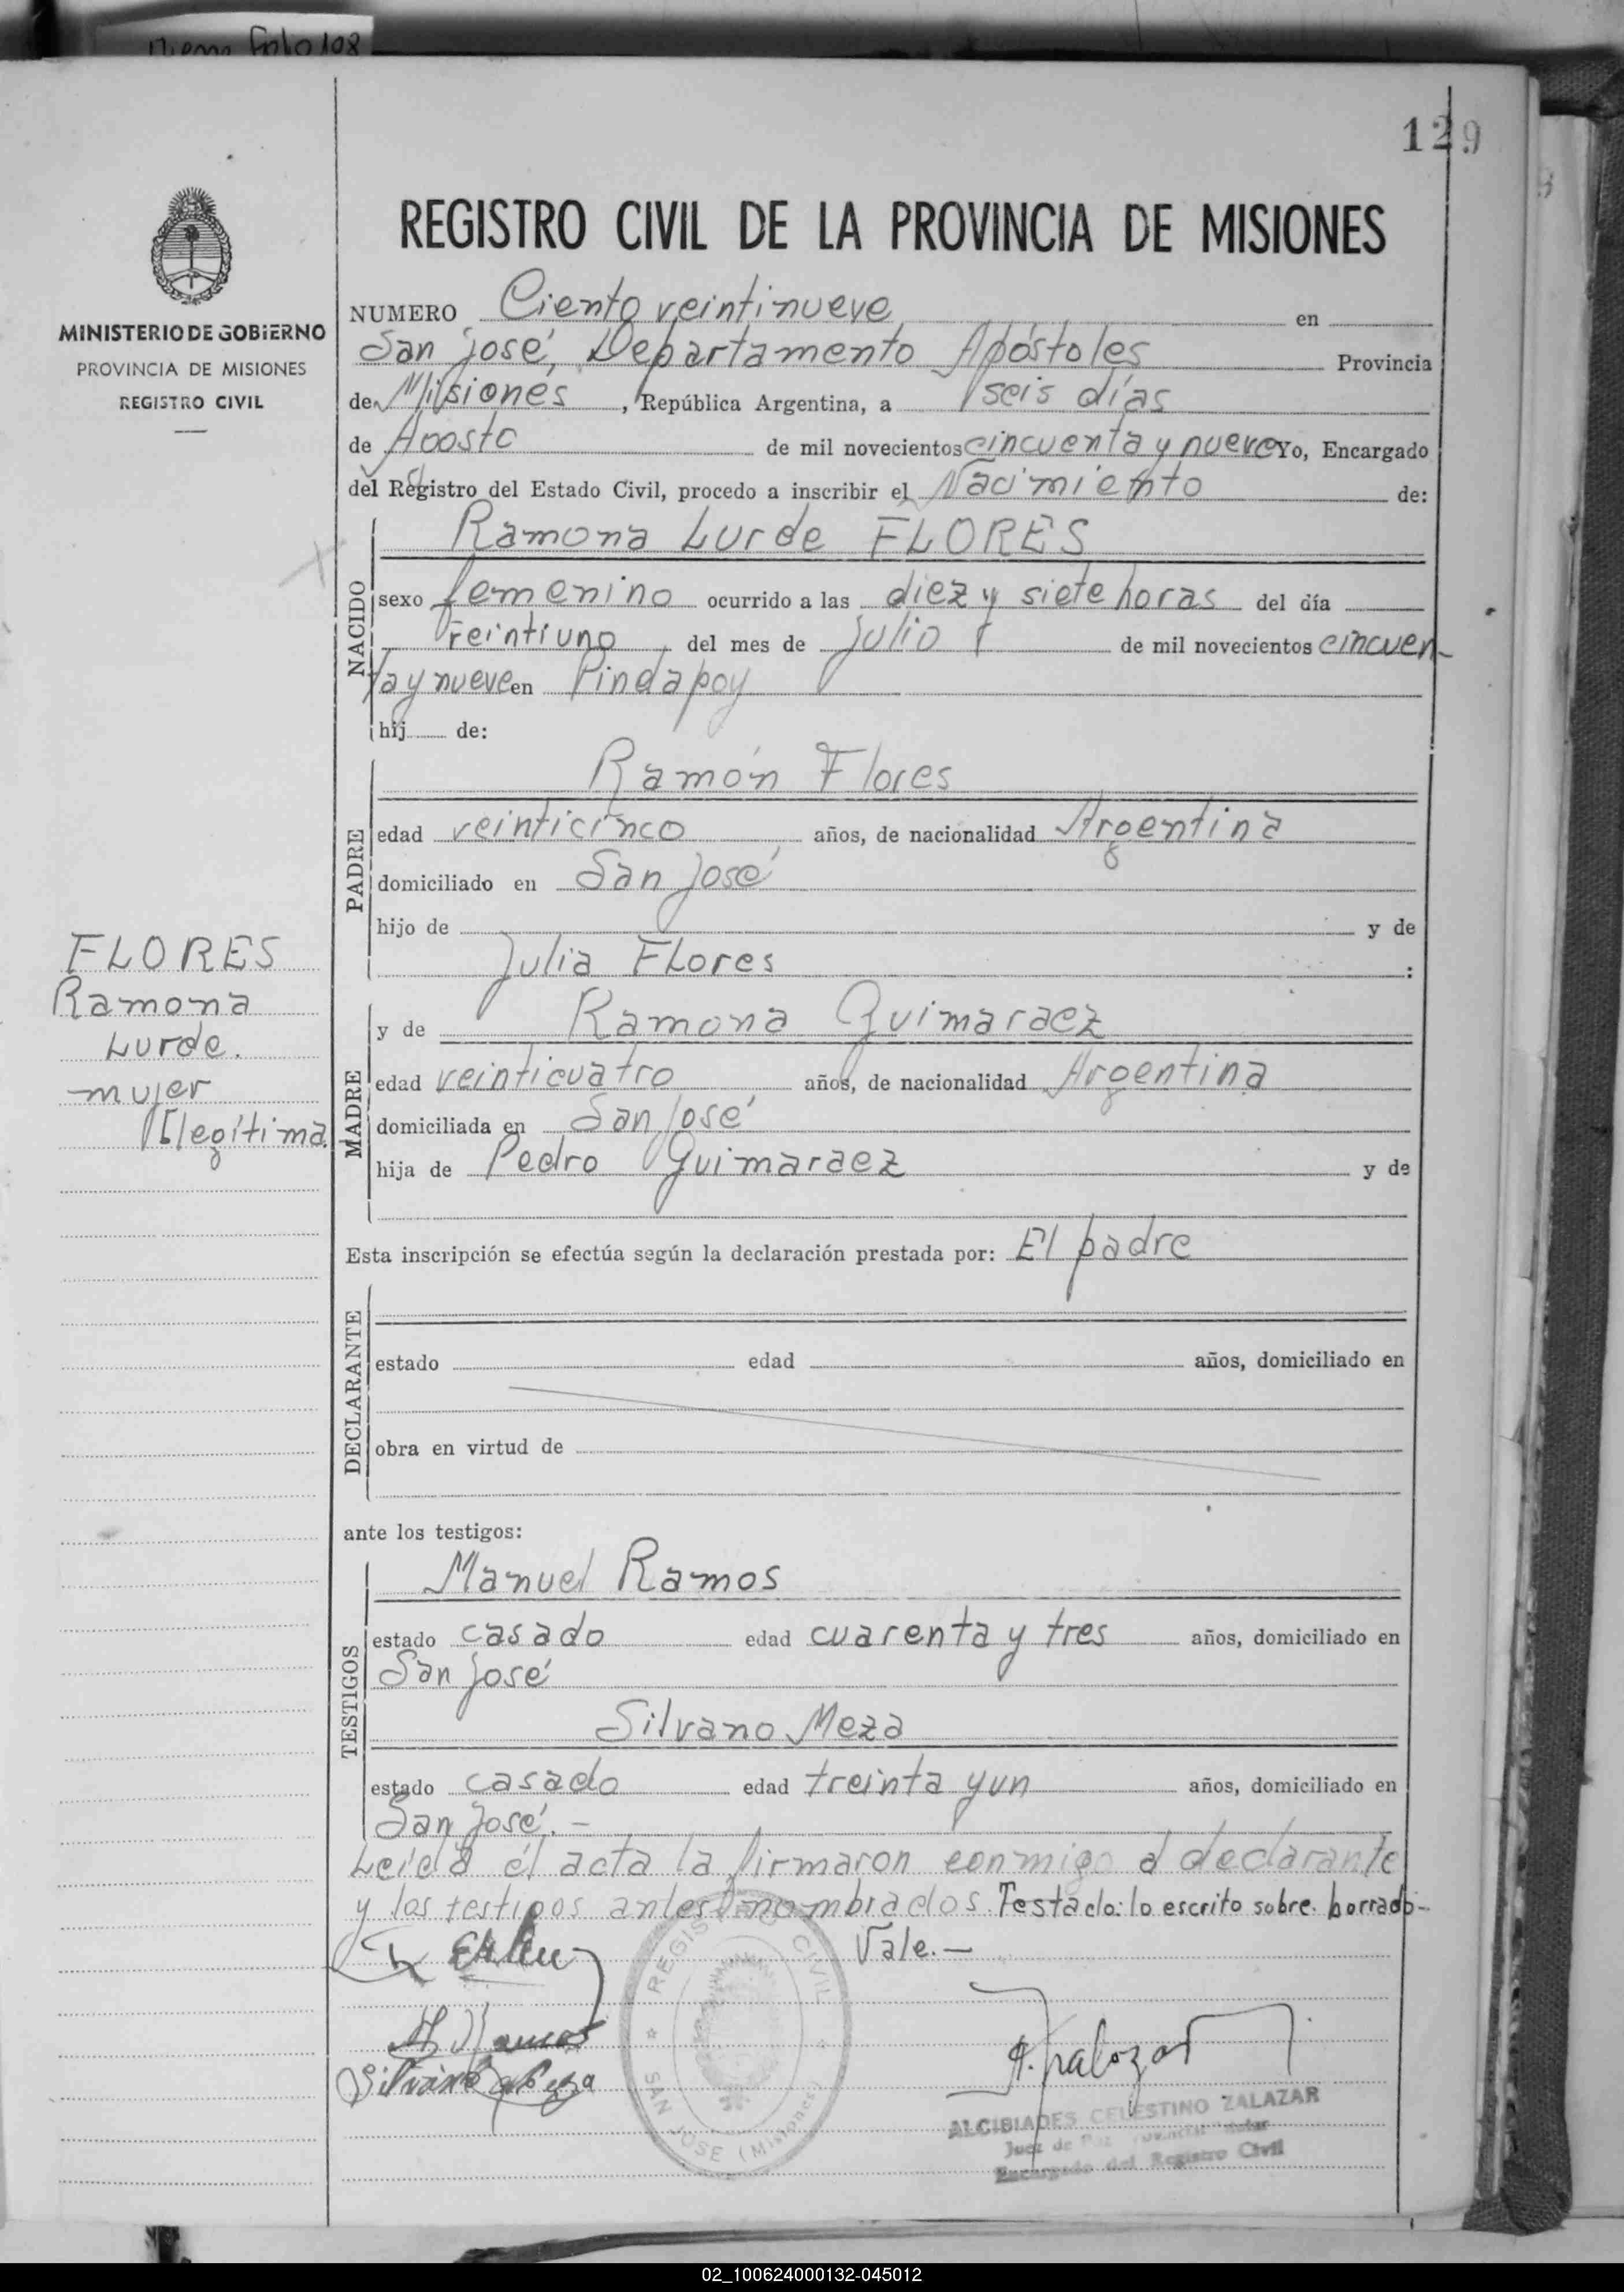 Folio 108
129
REGISTRO CIVIL DE LA PROVINCIA DE MISIONES
MINISTERIO DE GOBIERNO
PROVINCIA DE MISIONES
REGISTRO CIVIL
NUMERO Ciento veintinueve en
San José, Departamento Apóstoles Provincia
de Misiones, República Argentina, a seis días
de Agosto de mil novecientos cincuenta y nueve Yo, Encargado
del Registro del Estado Civil, procedo a inscribir el Nacimiento de:
NACIDO
Ramona Lurde FLORES
sexo femenino ocurrido a las diez y siete horas del día
veintiuno del mes de Julio de mil novecientos cincuen-
ta y nueve en Pindapoy
hij de:
PADRE
Ramón Flores
edad veinticinco años, de nacionalidad Argentina
domiciliado en San José
hijo de y de
Julia Flores :
FLORES
Ramona
Lurde.
mujer
Ilegítima.
MADRE
y de Ramona Guimaraez
edad veinticuatro años, de nacionalidad Argentina
domiciliada en San José
hija de Pedro Guimaraez y de
Esta inscripción se efectúa según la declaración prestada por: El padre
DECLARANTE
estado edad años, domiciliado en
obra en virtud de
ante los testigos:
TESTIGOS
Manuel Ramos
estado casado edad cuarenta y tres años, domiciliado en
San José
Silvano Meza
estado casado edad treinta y un años, domiciliado en
San José.-
Leida el acta la firmaron conmigo el declarante
y los testigos antes nombrados. Testado: lo escrito sobre borrado-
Vale.-
REGISTRO CIVIL
SAN JOSE (Misiones)
ALCIBIADES CELESTINO ZALAZAR
Juez de Paz Titular
Encargado del Registro Civil
02_100624000132-045012